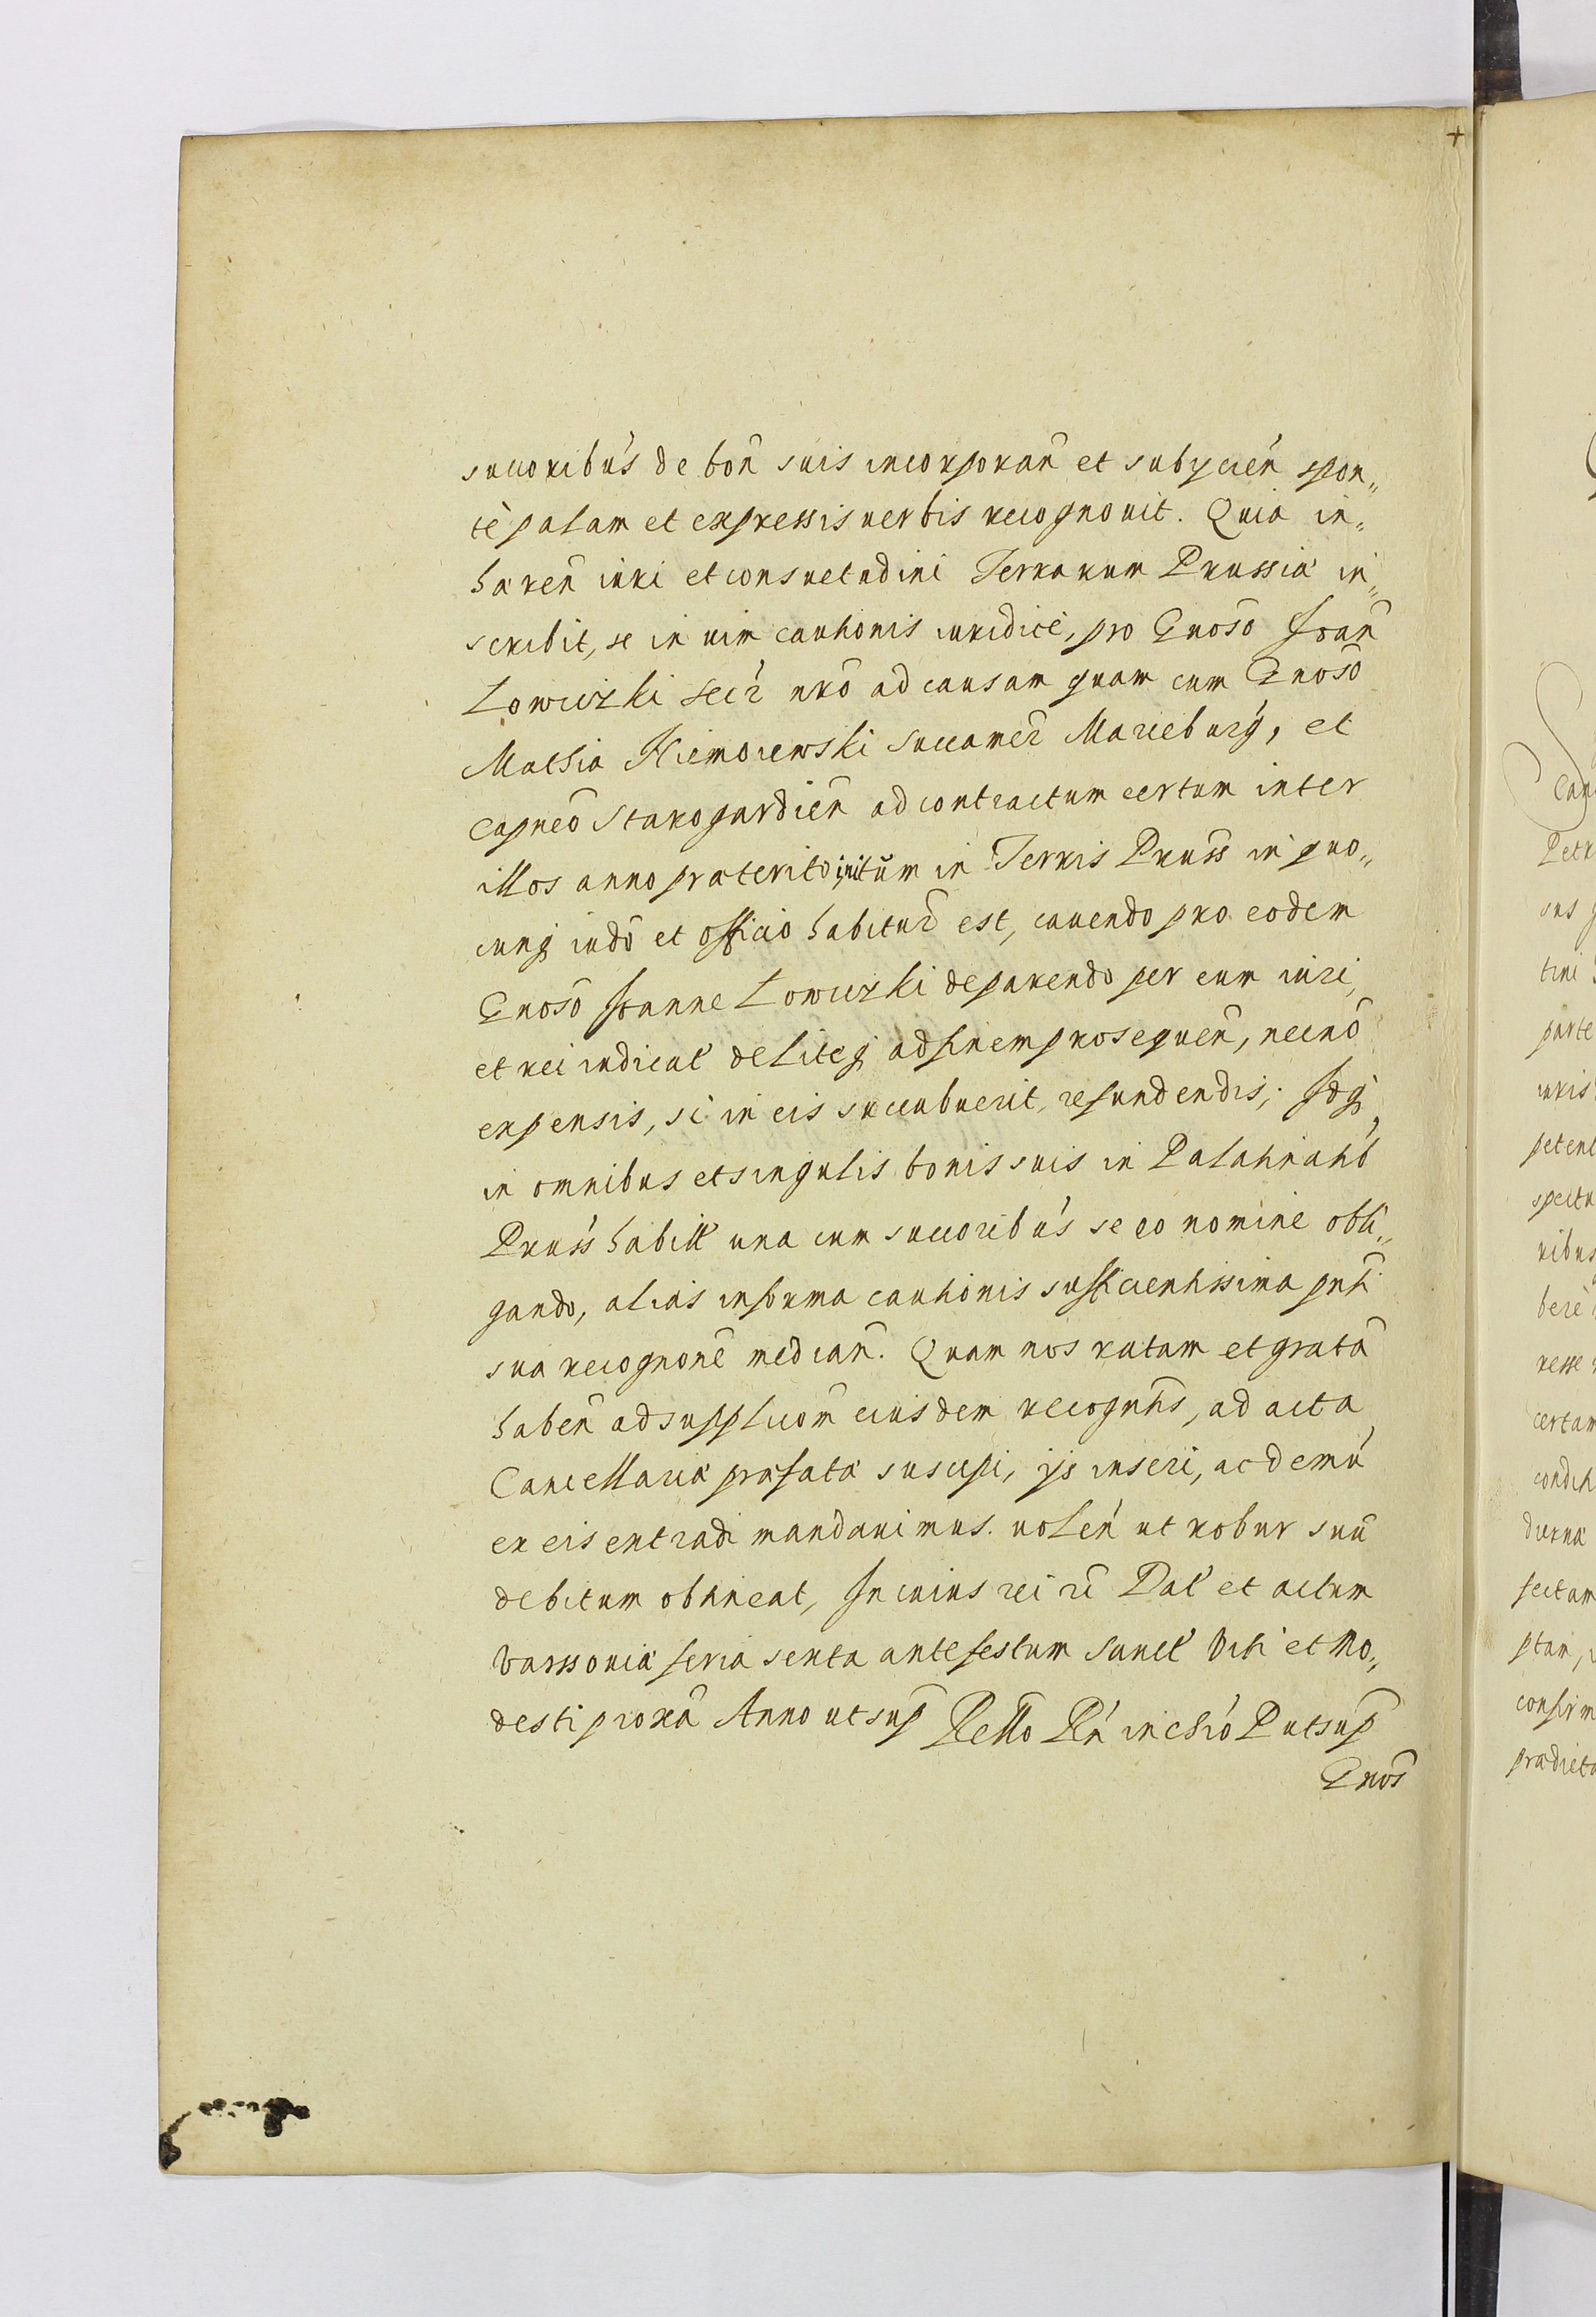 succoribús de bon̄ suis incorporan̄ et subycien̄ spon„
tè palam et expressis verbis recognouit. Quia in„
hæren̄ iuri et consuetudini Terrarum Prussiæ in„
scribit, se in uim cautionis iuridicè, pro Gnōso Joan̄
Lowiczki Secr̄ nr̄o ad causam quam cum Gnōso
Mathia Niemoiewski Succamer̄ Marieburg, et
Capnēo Starogardien̄ ad contractum certum inter
illos anno præterito initum in Terris Pruss̄ in quo„
cunq̨ iudō et officio habitur̄ est, cauendo pro eodem
Gnōso Joanne Lowiczki de parendo per eum iuri,
et rei iudicat̄ de Liteq̨ ad finem prosequen̄, necnō
expensis, si in eis succubuerit, refundendis; Idq̨,
in omnibus et singulis bonis suis in Palatinatib̄
Pruss̄ habit̄ una cum succoribús se eo nomine obli„
gando, alias in forma cautionis sufficientissima pn̄ti
sua recognōne median̄. Quam nos ratam et gratā
haben̄ ad supplicōm eiusdem recogntīs, ad acta
Cancellariæ præfatæ suscipi, ijs inseri, ac demū
ex eis extradi mandauimus. uolen̄ ut robur suū
debitum obtineat, In cuius rei r̄i Dat̄ et actum
Varssouiæ feria sexta ante festum Sanct̄ Viti et Mo„
desti proxā Anno ut sup̄ Rello Rń in chró P ut sup̄
Gnōs
+
Petr
tini
parte
iuris
petent
spectu
ribus
certam
condit
diurna
ptam,
confirm
prædicta